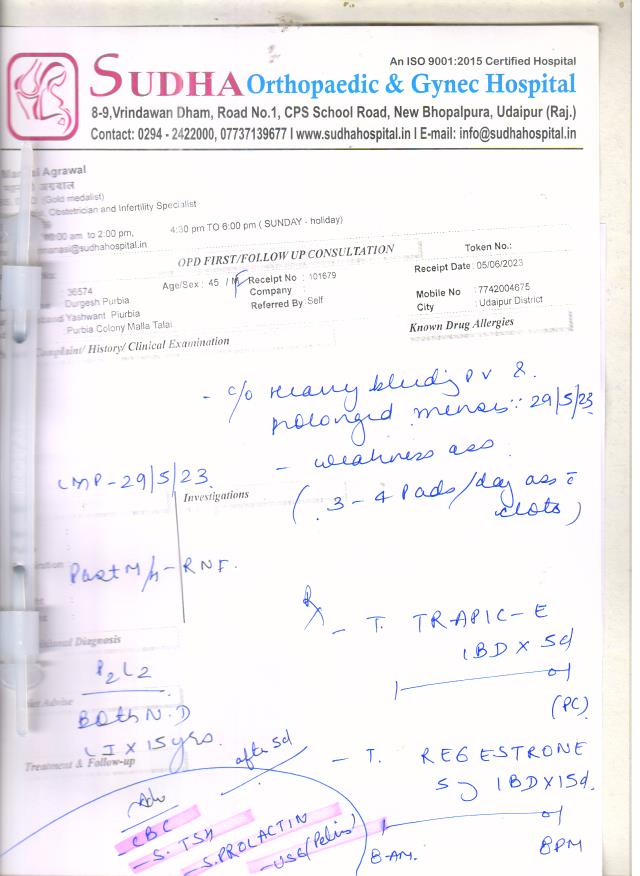 An ISO 9001:2015 Certified Hospital
SUDHA Orthopaedic & Gynec Hospital
8-9,Vrindawan Dham, Road No.1, CPS School Road, New Bhopalpura, Udaipur (Raj.)
Contact: 0294 - 2422000, 07737139677 I www.sudhahospital.in I E-mail: info@sudhahospital.in
Agrawal
अग्रवाल
(Gold medalist)
Obstetrician and Infertility Specialist
am to 2:00 pm, 4:30 pm TO 6:00 pm ( SUNDAY - holiday)
@sudhahospital.in
OPD FIRST/FOLLOW UP CONSULTATION
Token No.:
36574 Age/Sex : 45 / F Receipt No : 101679 Receipt Date : 05/06/2023
Durgesh Purbia Company : Mobile No : 7742004675
Yashwant Piurbia Referred By : Self City : Udaipur District
Purbia Colony Malla Talai
Known Drug Allergies
Complaint/ History/ Clinical Examination
- c/o Heavy bleeding PV &
prolonged menses :: 29/5/23
- weakness ass
( 3 - 4 Pads/day ass c̄
clots)
LMP - 29/5/23
Investigations
Past M/H - RNF.
Rx
- T. TRAPIC-E
1BD x 5d
(PC)
Diagnosis
P2L2
Both N.D
LI x 15yrs.
Advise
Treatment & Follow-up
after 5d
- T. REGESTRONE
5 1BDX15d.
8-AM. 8PM
Adv
- CBC
- S. TSH
- S. PROLACTIN
- USG (Pelvis)